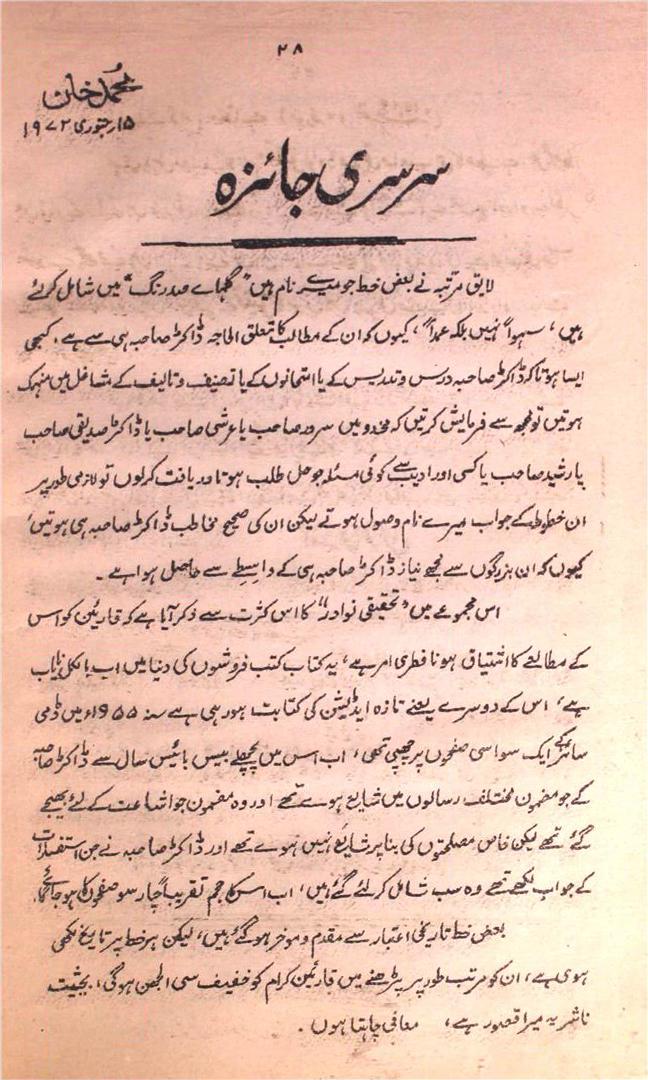 ۲۸
محمد خان
۱۵ر جنوری ۱۹۷۲
سرسری جائزہ
لایق مرتبہ نے بعض خط جو میرے نام ہیں "گلہاے صد رنگ" میں شامل کرلئے
ہیں، سہواً نہیں بلکہ عمداً، کیوں کہ ان کے مطالب کا تعلق الحاجہ ڈاکٹر صاحبہ ہی سے ہے، کبھی
ایسا ہوتا کہ ڈاکٹر صاحبہ درس و تدریس کے یا امتحانوں کے یا تصنیف و تالیف کے مشاغل میں منہمک
ہوتیں تو مجھ سے فرمایش کرتیں کہ مخدومیں سرور صاحب یا عرشی صاحب یا ڈاکٹر صدیقی صاحب
یا رشید صاحب یا کسی اور ادیب سے کوئی مسئلہ جو حل طلب ہوتا دریافت کرلوں تو لازمی طور پر
ان خطوط کے جواب میرے نام وصول ہوتے لیکن ان کی صحیح مخاطب ڈاکٹر صاحبہ ہی ہوتیں،
کیوں کہ ان بزرگوں سے مجھے نیاز ڈاکٹر صاحبہ ہی کے واسطے سے حاصل ہوا ہے۔
اس مجموعے میں "تحقیقی نوادر" کا اس کثرت سے ذکر آیا ہے کہ قارئین کو اس
کے مطالعے کا اشتیاق ہونا فطری امر ہے، یہ کتاب کتب فروشوں کی دنیا میں اب بالکل نایاب
ہے، اس کے دوسرے یعنے تازہ ایڈیشن کی کتابت ہو رہی ہے سنہ ۱۹۵۵ء میں ڈمی
سائز کے ایک سو اسی صفحوں پر چھپی تھی، اب اس میں پچھلے بیس بائیس سال سے ڈاکٹر صاحبہ
کے جو مضمون مختلف رسالوں میں شایع ہوے تھے اور وہ مضمون جو اشاعت کے لئے بھیجے
گئے تھے لیکن خاص مصلحتوں کی بنا پر شایع نہیں ہوے تھے اور ڈاکٹر صاحبہ نے جن استفسارات
کے جواب لکھے تھے وہ سب شامل کرلئے گئے ہیں، اب اس کا حجم تقریباً چار سو صفحوں کا ہو جائے گا۔
بعض خط تاریخی اعتبار سے مقدم و موخر ہو گئے ہیں، لیکن ہر خط پر تاریخ لکھی
ہوی ہے، ان کو مرتب طور پر پڑھنے میں قارئین کرام کو خفیف سی الجھن ہوگی، بحیثیت
ناشر یہ میرا قصور ہے، معافی چاہتا ہوں۔